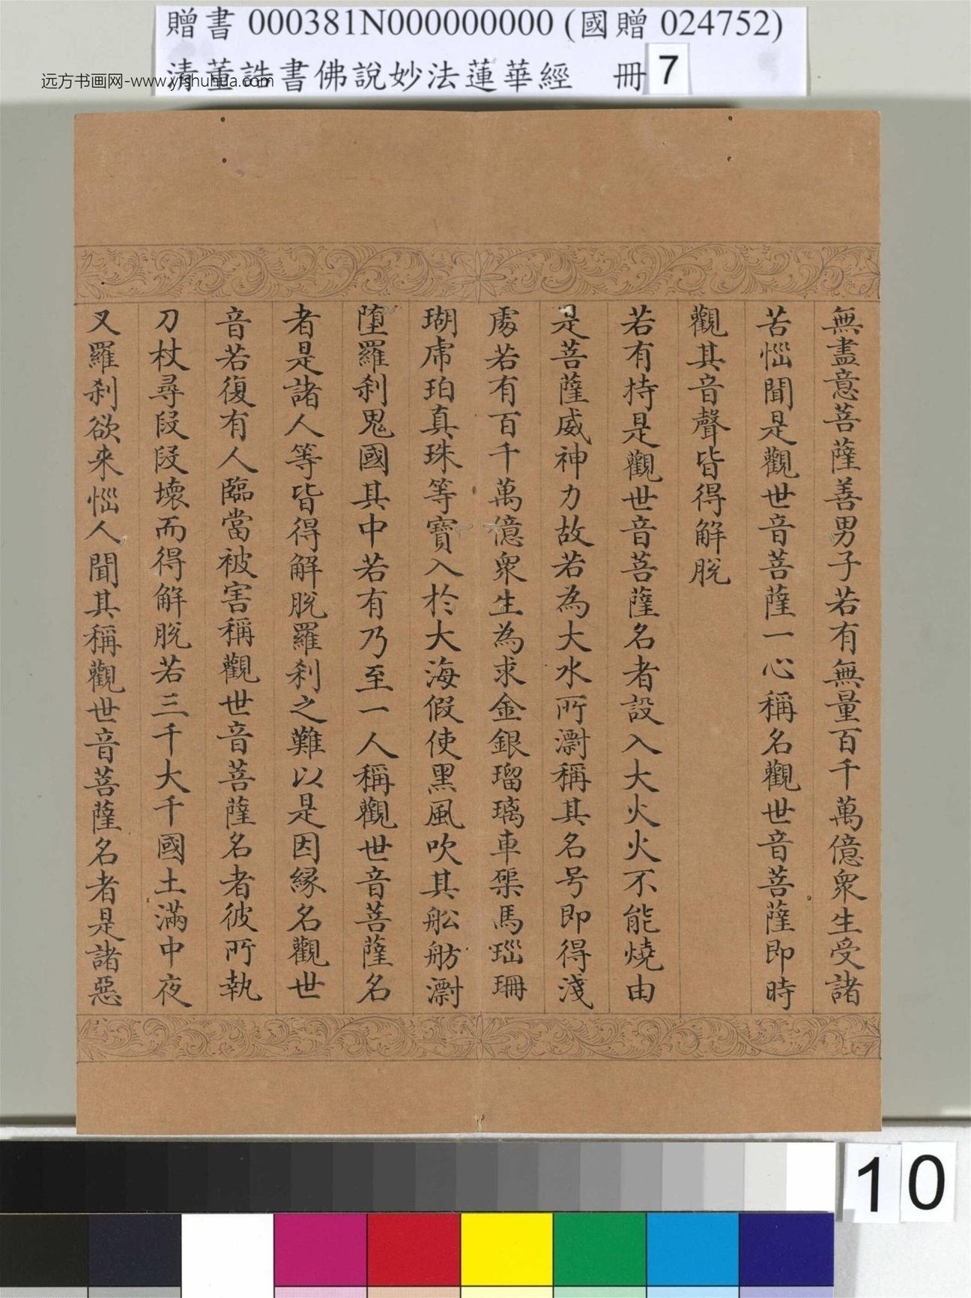 贈書 000381N000000000 (國贈 024752)
清董誥書佛說妙法蓮華經 冊 7
远方书画网-www.yfshuhua.com
無盡意菩薩善男子若有無量百千萬億衆生受諸
苦惱聞是觀世音菩薩一心稱名觀世音菩薩即時
觀其音聲皆得解脫
若有持是觀世音菩薩名者設入大火火不能燒由
是菩薩威神力故若為大水所漂稱其名号即得淺
處若有百千萬億衆生為求金銀瑠璃車𤦲馬瑙珊
瑚虎珀真珠等寶入於大海假使黑風吹其舩舫漂
墮羅刹鬼國其中若有乃至一人稱觀世音菩薩名
者是諸人等皆得解脫羅刹之難以是因緣名觀世
音若復有人臨當被害稱觀世音菩薩名者彼所執
刀杖尋段段壞而得解脫若三千大千國土滿中夜
叉羅刹欲來惱人聞其稱觀世音菩薩名者是諸惡
10